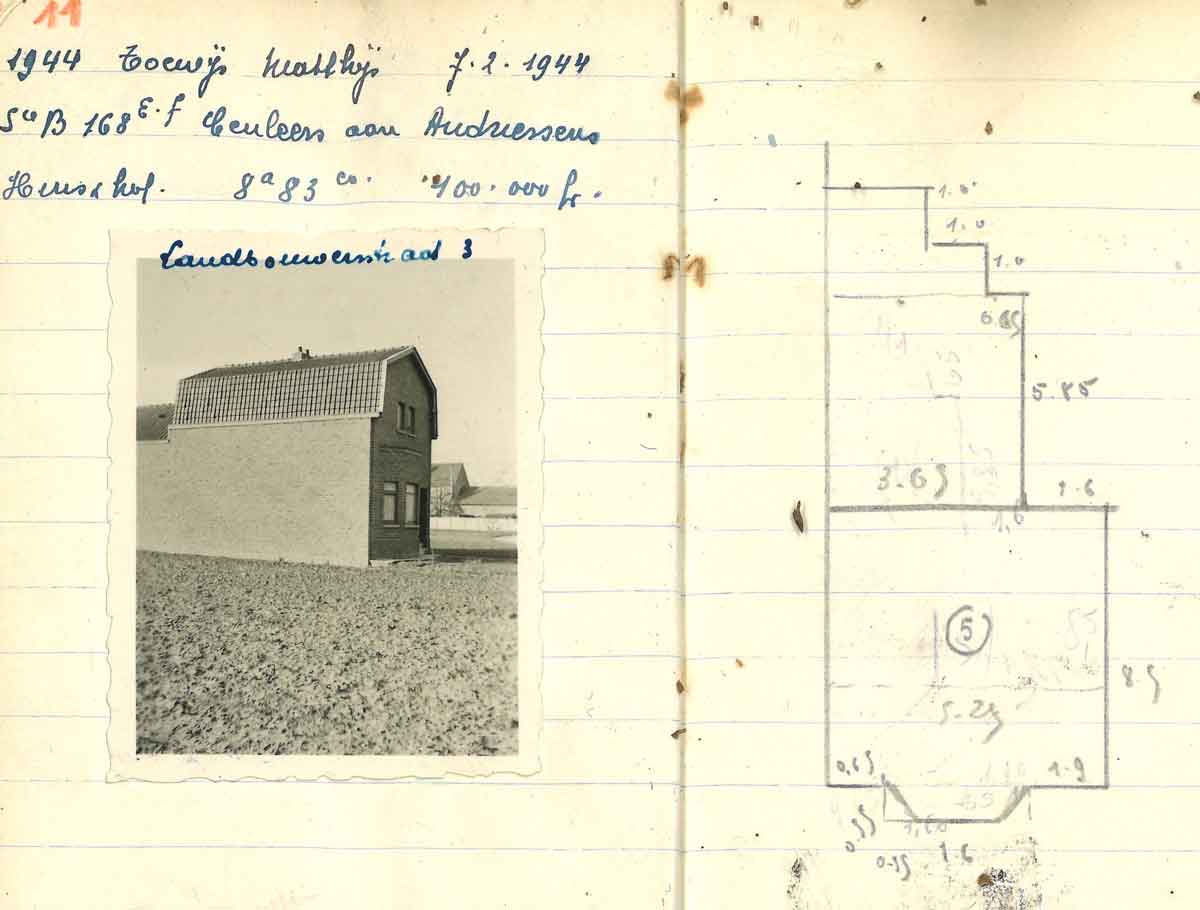 11
1944 Toewijs Matthijs 7.2.1944
Sie B 168 E.f Ceuleers aan Andriessens
Huis & hof. 8a 83 ca. 100.000 fr.
Landbouwersstraat 3
1.0
1.0
1.0
0.65
5.85
3.65
1.6
1,6
5
8 5
5.25
0,65
1.9
1,60
0.35
1.6